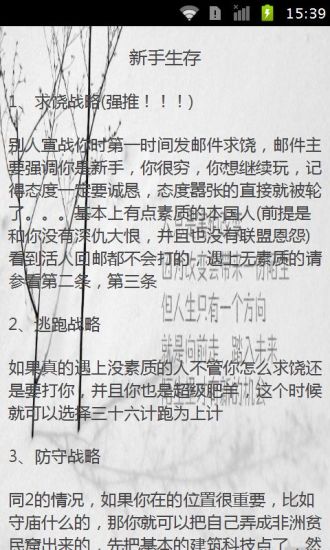 15:39
新手生存
1、求饶战略(强推！！！)
别人宣战你时第一时间发邮件求饶，邮件主
要强调你是新手，你很穷，你想继续玩，记
得态度一定要诚恳，态度嚣张的直接就被轮
了。。。基本上有点素质的本国人(前提是
和你没有深仇大恨，并且也没有联盟恩怨)
看到活人回邮都不会打的，遇上无素质的请
参看第二条，第三条
但人生只有一个方向
就是向前走，踏入未来
2、逃跑战略
如果真的遇上没素质的人不管你怎么求饶还
是要打你，并且你也是超级肥羊，这个时候
就可以选择三十六计跑为上计
3、防守战略
同2的情况，如果你在的位置很重要，比如
守庙什么的，那你就可以把自己弄成非洲贫
民窟出来的，先把基本的建筑科技点了，然